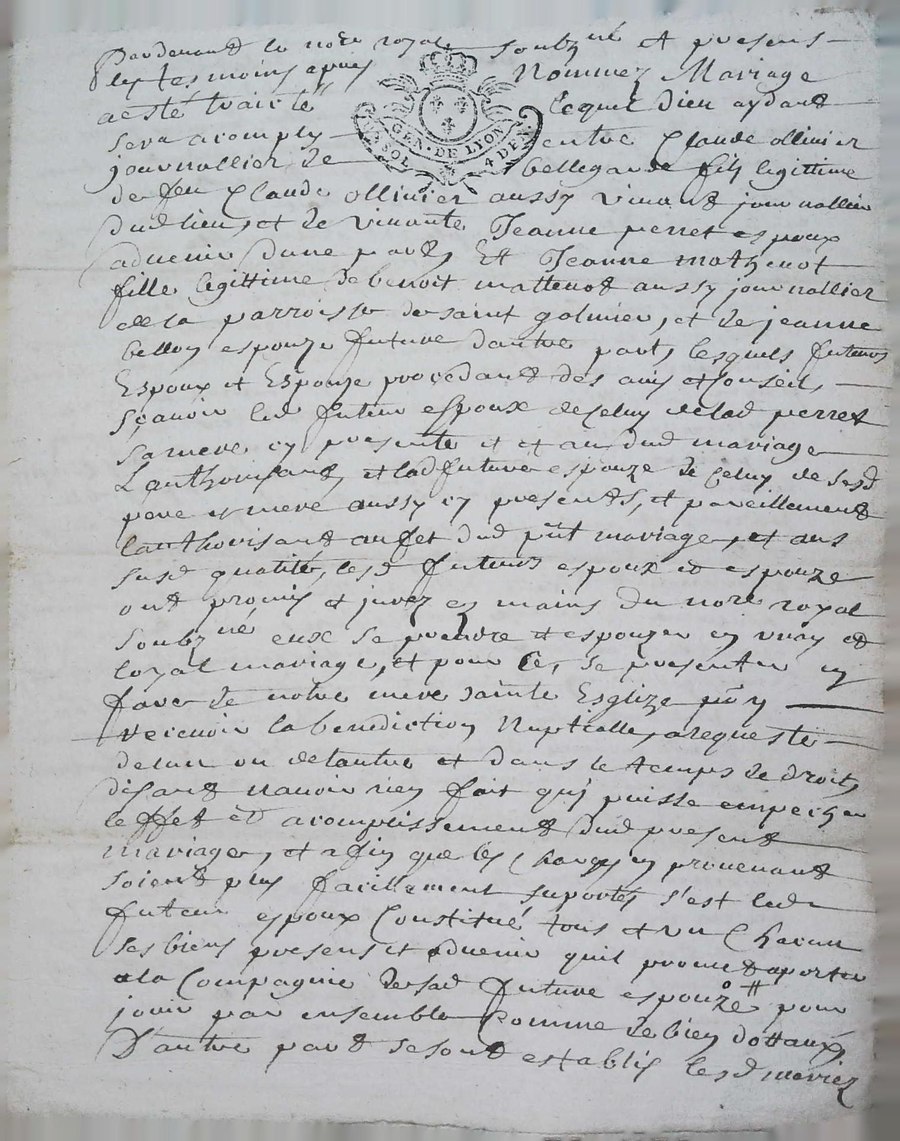 Pardevant le no.re royal soubz.né et presens
les tesmoins apres Nommez Mariage
a esté traicté lequel Dieu aydant
sera acomply entre Claude ollinier
GEN. DE LYON
2 SOL 4 DEN
journallier de bellegarde fils legittime
de feu Claude ollinier aussy vivant journallier
dud lieu, et de vivante Jeanne perret espoux
advenir dune part, Et Jeanne mathenot
fille legittime de benoit mattenot aussy journallier
de la parroisse de saint galmier, et de jeanne
bellon espouze future dautre part, lesquels futurs
Espoux et Espouze procedant des avis et Conseil,
sçavoir led futur espoux de Celuy de lad perret
sa mere cy presente et et au dud mariage
Lauthorisant, et lad future espouze de Celuy de sesd
pere et mere aussy cy presents, et pareillement
lauthorisant au fet dud pnt mariage, et aus
susd qualité, lesd futurs espoux et espouze
ont promis et jurez es mains du no.re royal
soubz.né eux se prendre et espouzer en vray et
loyal mariage, et pour Ce, se presenter en
face de notre mere sainte Esglize pour y
recevoir la benediction Nuptialle, a requeste
de lun ou de lautre et dans le temps de droit,
disant navoir rien fait quj puisse empecher
leffet et acomplissement dud present
mariage, et afin que les Charges en provenant
soient plus facillement suportés s'est led
futeur espoux Constitué tous et un Chacun
ses biens presens et advenir quil promet aporter
a la Compagnie de sad future espouze # pour
jouir par ensemble Comme de bien dottaux,
D'autre part se sont establis lesd mariez